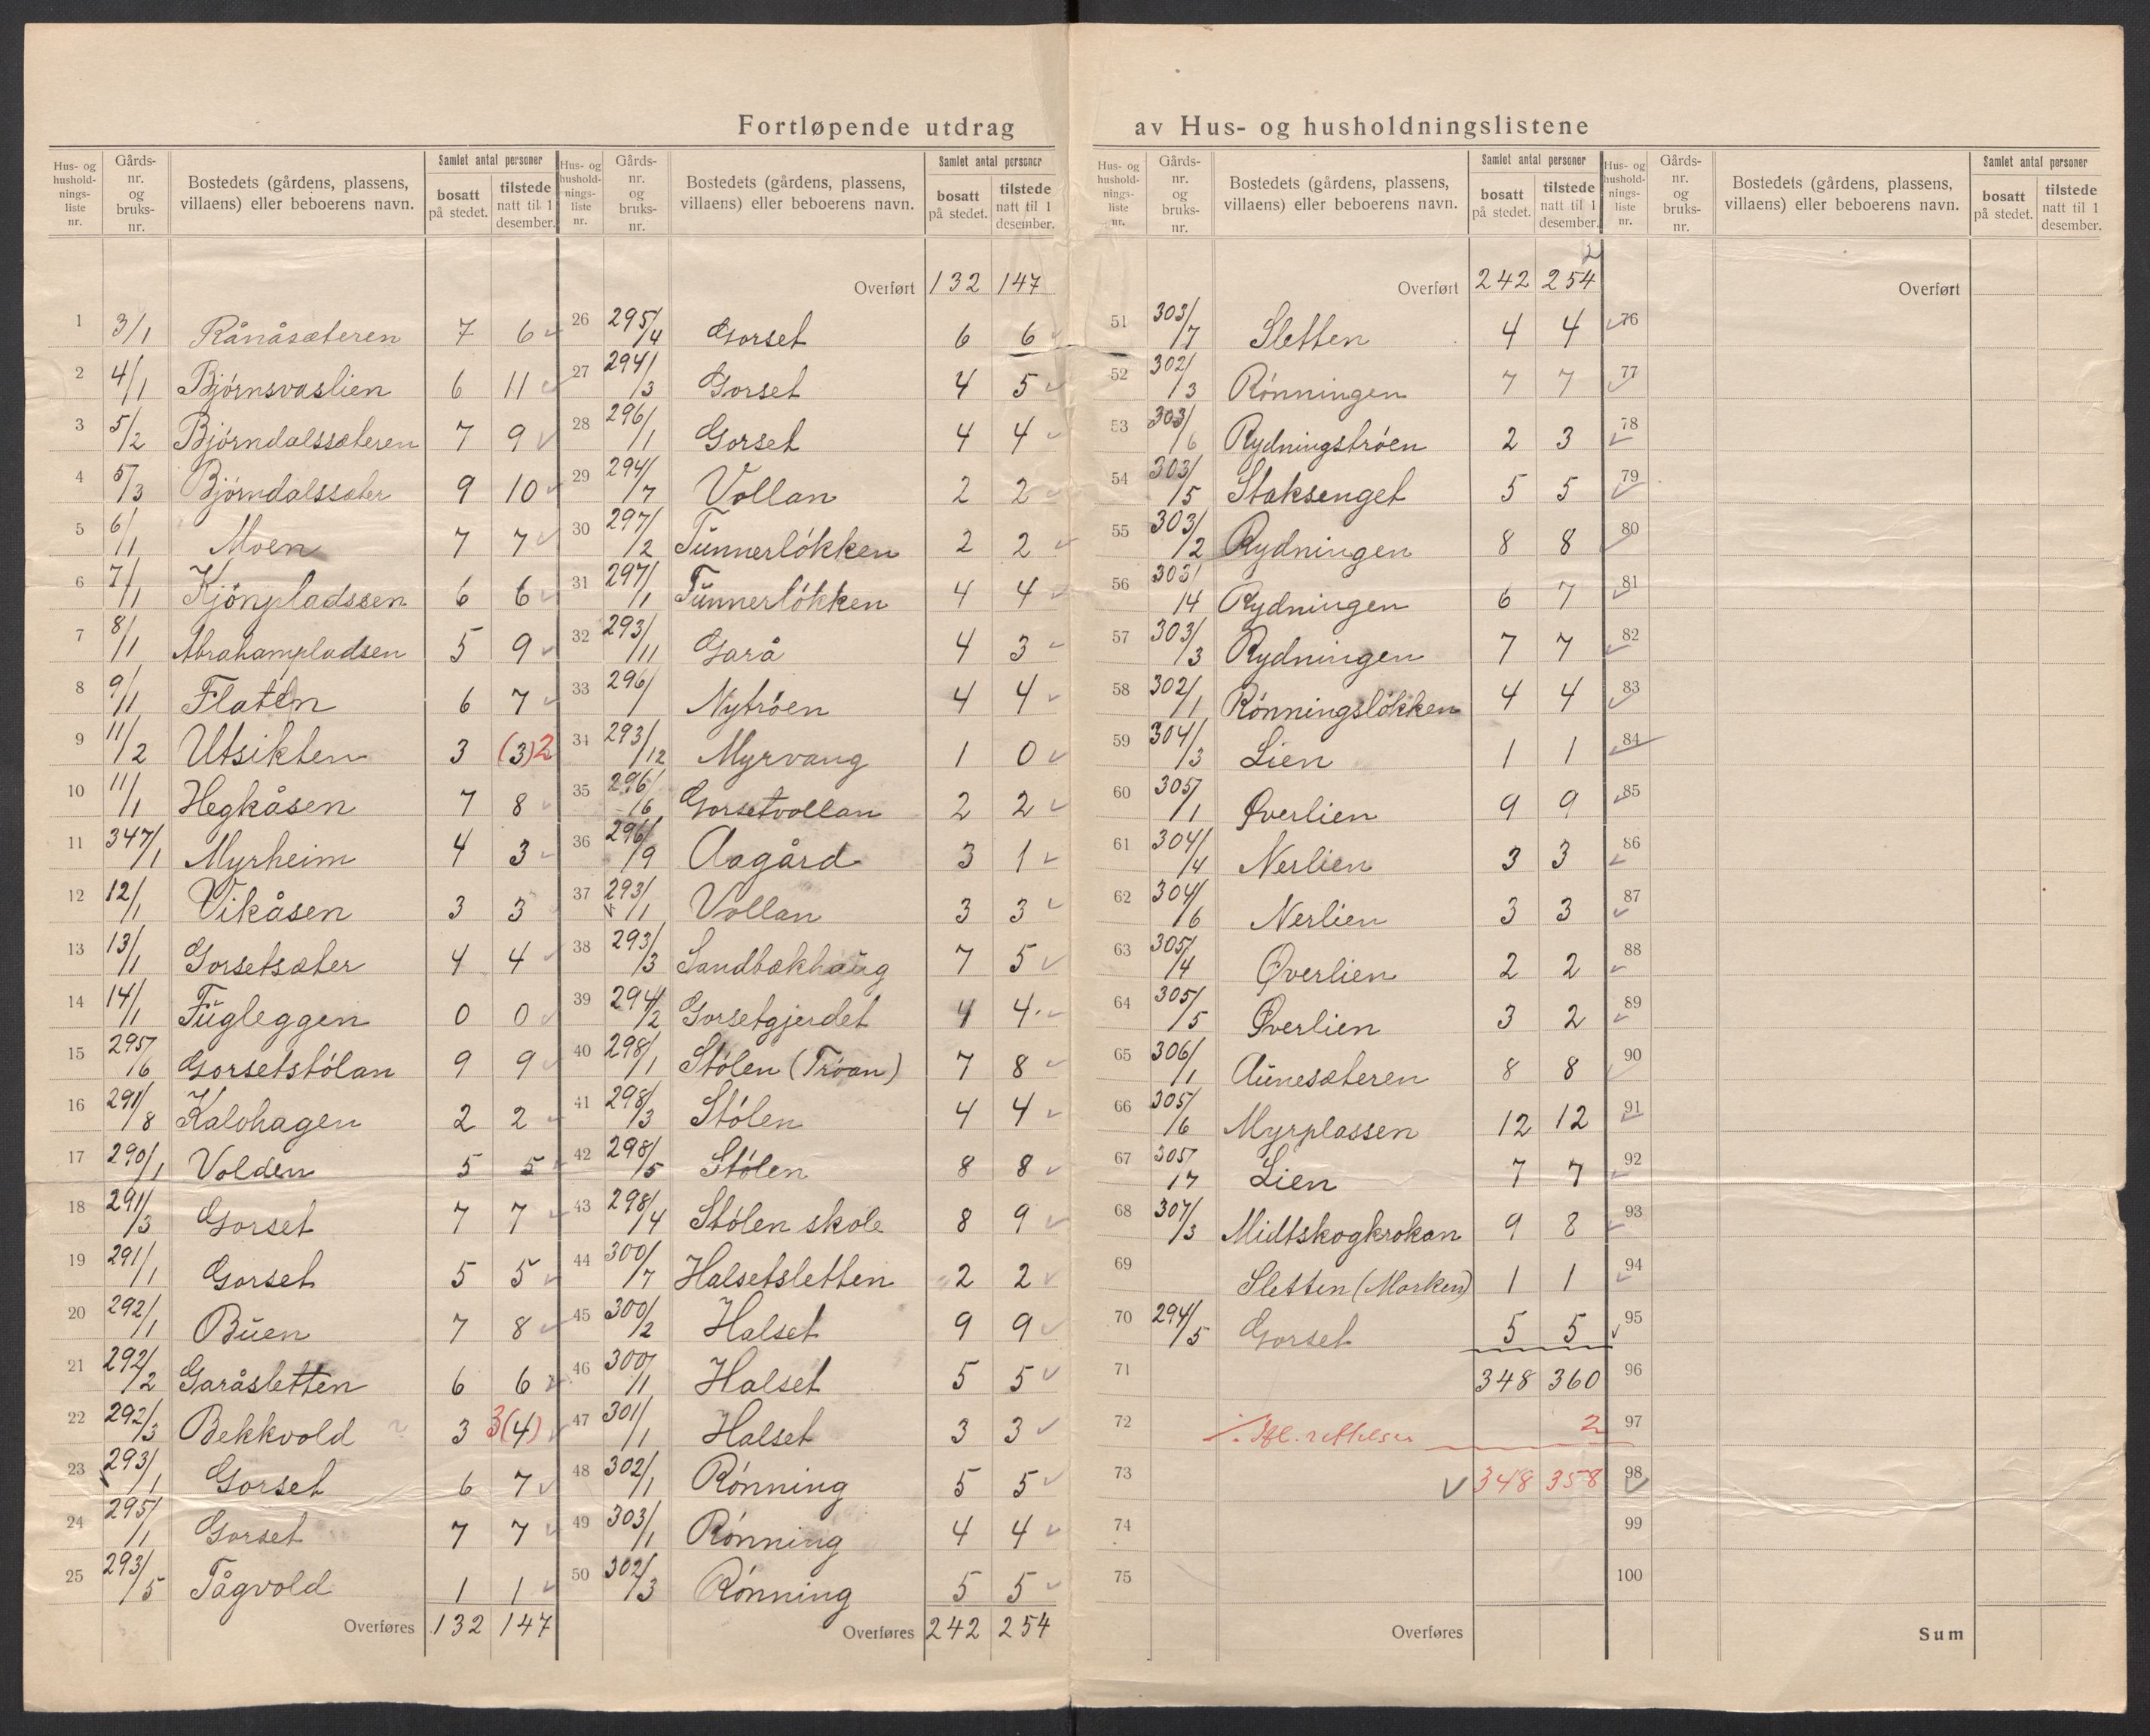 Fortløpende utdrag av Hus- og husholdningslistene
Hus- og husholdningsliste nr. | Gårds- nr. og bruks- nr. | Bostedets (gårdens, plassens, villaens) eller beboerens navn. | Samlet antal personer bosatt på stedet. | tilstede natt til 1 desember.
1 3/1 Rånåsæteren 7 6
2 4/1 Bjørnsvaslien 6 11
3 5/2 Bjørndalssæteren 7 9
4 5/3 Bjørndalssæter 9 10
5 6/1 Moen 7 7
6 7/1 Kjønpladssen 6 6
7 8/1 Abrahampladsen 5 9
8 9/1 Flaten 6 7
9 11/2 Utsikten 3 (3) 2
10 11/1 Hegkåsen 7 8
11 347/1 Myrheim 4 3
12 12/1 Vikåsen 3 3
13 13/1 Gorsetsæter 4 4
14 14/1 Fugleggen 0 0
15 295/6 Gorsetstølan 9 9
16 291/8 Kalohagen 2 2
17 290/1 Volden 5 5
18 291/3 Gorset 7 7
19 291/1 Gorset 5 5
20 292/1 Buen 7 8
21 292/2 Garåsletten 6 6
22 292/3 Bekkvold 3 3 (4)
23 293/1 Gorset 6 7
24 295/1 Gorset 7 7
25 293/5 Tågvold 1 1
Overføres 132 147
Hus- og husholdningsliste nr. | Gårds- nr. og bruks- nr. | Bostedets (gårdens, plassens, villaens) eller beboerens navn. | Samlet antal personer bosatt på stedet. | tilstede natt til 1 desember.
Overført 132 147
26 295/4 Gorset 6 6
27 294/3 Gorset 4 5
28 296/1 Gorset 4 4
29 294/7 Vollan 2 2
30 297/2 Tunnerløkken 2 2
31 297/1 Tunnerløkken 4 4
32 293/11 Garå 4 3
33 296/ Nytrøen 4 4
34 293/12 Myrvang 1 0
35 296/6 Gorsetvollan 2 2
36 296/9 Aagård 3 1
37 293/1 Vollan 3 3
38 293/3 Sandbækhaug 7 5
39 294/2 Gorsetgjerdet 4 4
40 298/1 Stølen (Trøan) 7 8
41 298/3 Stølen 4 4
42 298/5 Stølen 8 8
43 298/4 Stølen skole 8 9
44 300/7 Halsetsletten 2 2
45 300/2 Halset 9 9
46 300/1 Halset 5 5
47 301/1 Halset 3 3
48 302/1 Rønning 5 5
49 303/1 Rønning 4 4
50 302/3 Rønning 5 5
Overføres 242 254
Hus- og husholdningsliste nr. | Gårds- nr. og bruks- nr. | Bostedets (gårdens, plassens, villaens) eller beboerens navn. | Samlet antal personer bosatt på stedet. | tilstede natt til 1 desember.
2
Overført 242 254
51 303/7 Sletten 4 4
52 302/3 Rønningen 7 7
53 303/6 Rydningstrøen 2 3
54 303/5 Staksenget 5 5
55 303/2 Rydningen 8 8
56 303/14 Rydningen 6 7
57 303/3 Rydningen 7 7
58 302/1 Rønningsløkken 4 4
59 304/3 Lien 1 1
60 305/1 Øverlien 9 9
61 304/4 Nerlien 3 3
62 304/6 Nerlien 3 3
63 305/4 Øverlien 2 2
64 305/5 Øverlien 3 2
65 306/1 Aunesæteren 8 8
66 305/6 Myrplassen 12 12
67 305/7 Lien 7 7
68 307/3 Midtskogkrokan 9 8
69 Sletten (Marken) 1 1
70 294/5 Gorset 5 5
71 348 360
72 2
73 348 358
74
75
Overføres
Hus- og husholdningsliste nr. | Gårds- nr. og bruks- nr. | Bostedets (gårdens, plassens, villaens) eller beboerens navn. | Samlet antal personer bosatt på stedet. | tilstede natt til 1 desember.
Overført
76
77
78
79
80
81
82
83
84
85
86
87
88
89
90
91
92
93
94
95
96
97
98
99
100
Sum